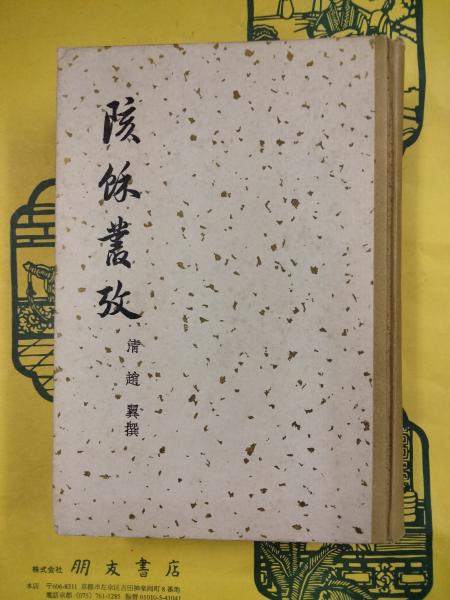 陔餘叢攷
清趙翼撰
株式会社 朋友書店
本店 〒606-8311 京都市左京区吉田神楽岡町8番地
電話京都(075)761-1285 振替01010-5-41041